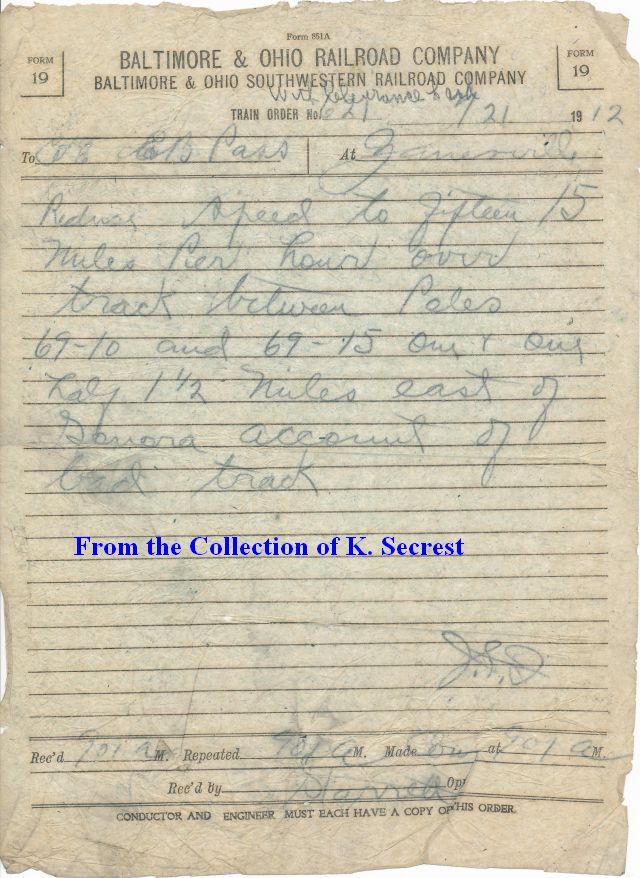 Form 851A
FORM 19
BALTIMORE & OHIO RAILROAD COMPANY
FORM 19
BALTIMORE & OHIO SOUTHWESTERN RAILROAD COMPANY
With Clearance Card
TRAIN ORDER No. 621 /21 1912
To C&E EB Pass At Zanesville
Reduce speed to fifteen 15
Miles Per hour over
track between Poles
69-10 and 69-15 One & One
half 1 1/2 Miles east of
Sonora account of
bad track
From the Collection of K. Secrest
Rec'd 901 a M. Repeated 901 a M. Made Com at 901 a M.
Rec'd by Opr
CONDUCTOR AND ENGINEER MUST EACH HAVE A COPY OF THIS ORDER.